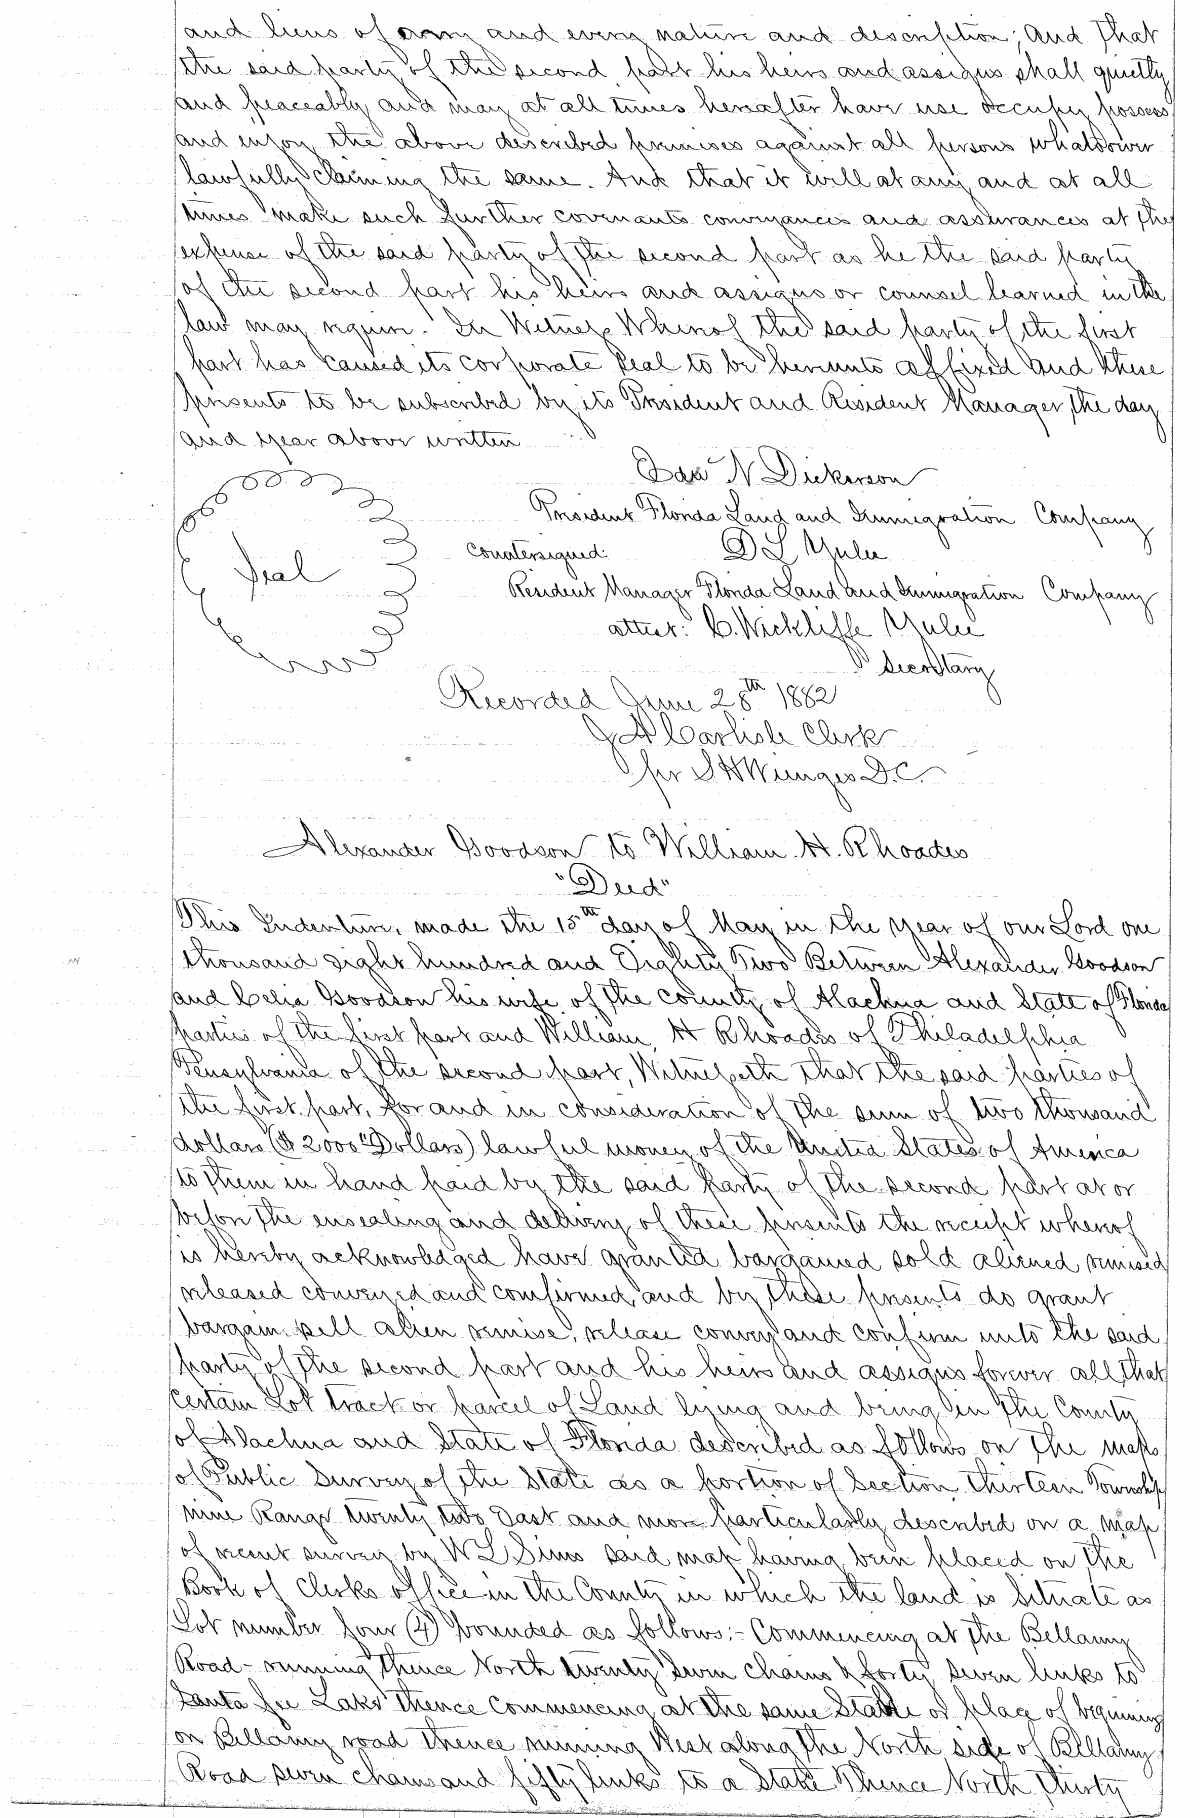 and liens of any and every nature and description; And That
the said party of the second part his heirs and assigns shall quietly
and peaceably and may at all times hereafter have use occupy possess
and enjoy the above described premises against all persons whatsoever
lawfully claiming the same. And that it will at any and at all
times make such further covenants conveyances and assurances at the
expense of the said party of the second part as he the said party
of the second part his heirs and assigns or counsel learned in the
law may require. In Witness Whereof the said party of the first
part has caused its corporate Seal to be hereunto affixed and these
presents to be subscribed by its President and Resident Manager, the day
and year above written
N Dickerson
President Florida Land and Immigration Company
Countersigned: D L Yulee
Seal
Resident Manager Florida Land and Immigration Company
attest: C. Wickliffe Yulee
Secretary
Recorded June 28th 1882
J A Carlisle Clerk
per S H Wienges D.C.
Alexander Goodson to William H. Rhoades
"Deed"
This Indenture, made the 15th day of May in the year of our Lord one
thousand eight hundred and Eighty Two Between Alexander Goodson
and Celia Goodson his wife of the county of Alachua and State of Florida
parties of the first part and William H Rhoades of Philadelphia
Pensylvania of the second part, Witnesseth that the said parties of
the first part, for and in consideration of the sum of two thousand
dollars ($2000 Dollars) lawful money of the United States of America
to them in hand paid by the said party of the second part at or
before the ensealing and delivery of these presents the receipt whereof
is hereby acknowledged have granted bargained sold aliened remised
released conveyed and comfirmed, and by these presents do grant
bargain sell alien remise, release convey and confirm unto the said
party of the second part and his heirs and assigns forever all that
certain Lot tract or parcel of Land lying and being in the County
of Alachua and State of Florida described as follows on the maps
of Public Survey of the State as a portion of Section thirteen Township
nine Range twenty two East and more particularly described on a map
of recent survey by W L Sims said map having been placed on the
Book of Clerks office in the County in which the land is Situate as
Lot number four (4) bounded as follows:- Commencing at the Bellamy
Road - running thence North twenty seven chains & forty seven links to
Santa fee Lake thence Commencing at the same Stake or place of beginning
on Bellamy road thence running West along the North side of Bellamy
Road seven chains and fifty links to a Stake Thence North thirty